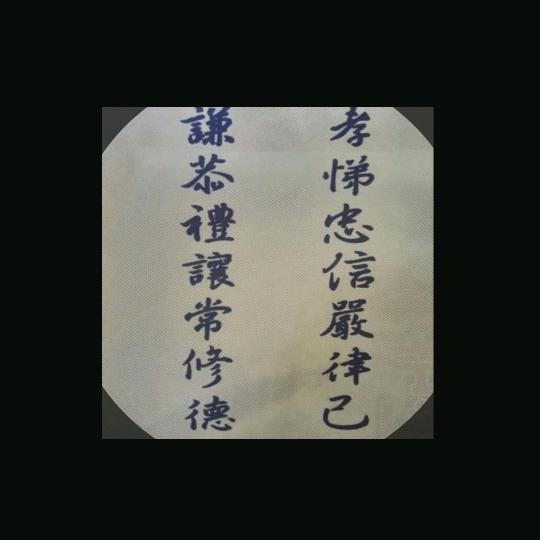 孝悌忠信嚴律己
謙恭禮讓常修德